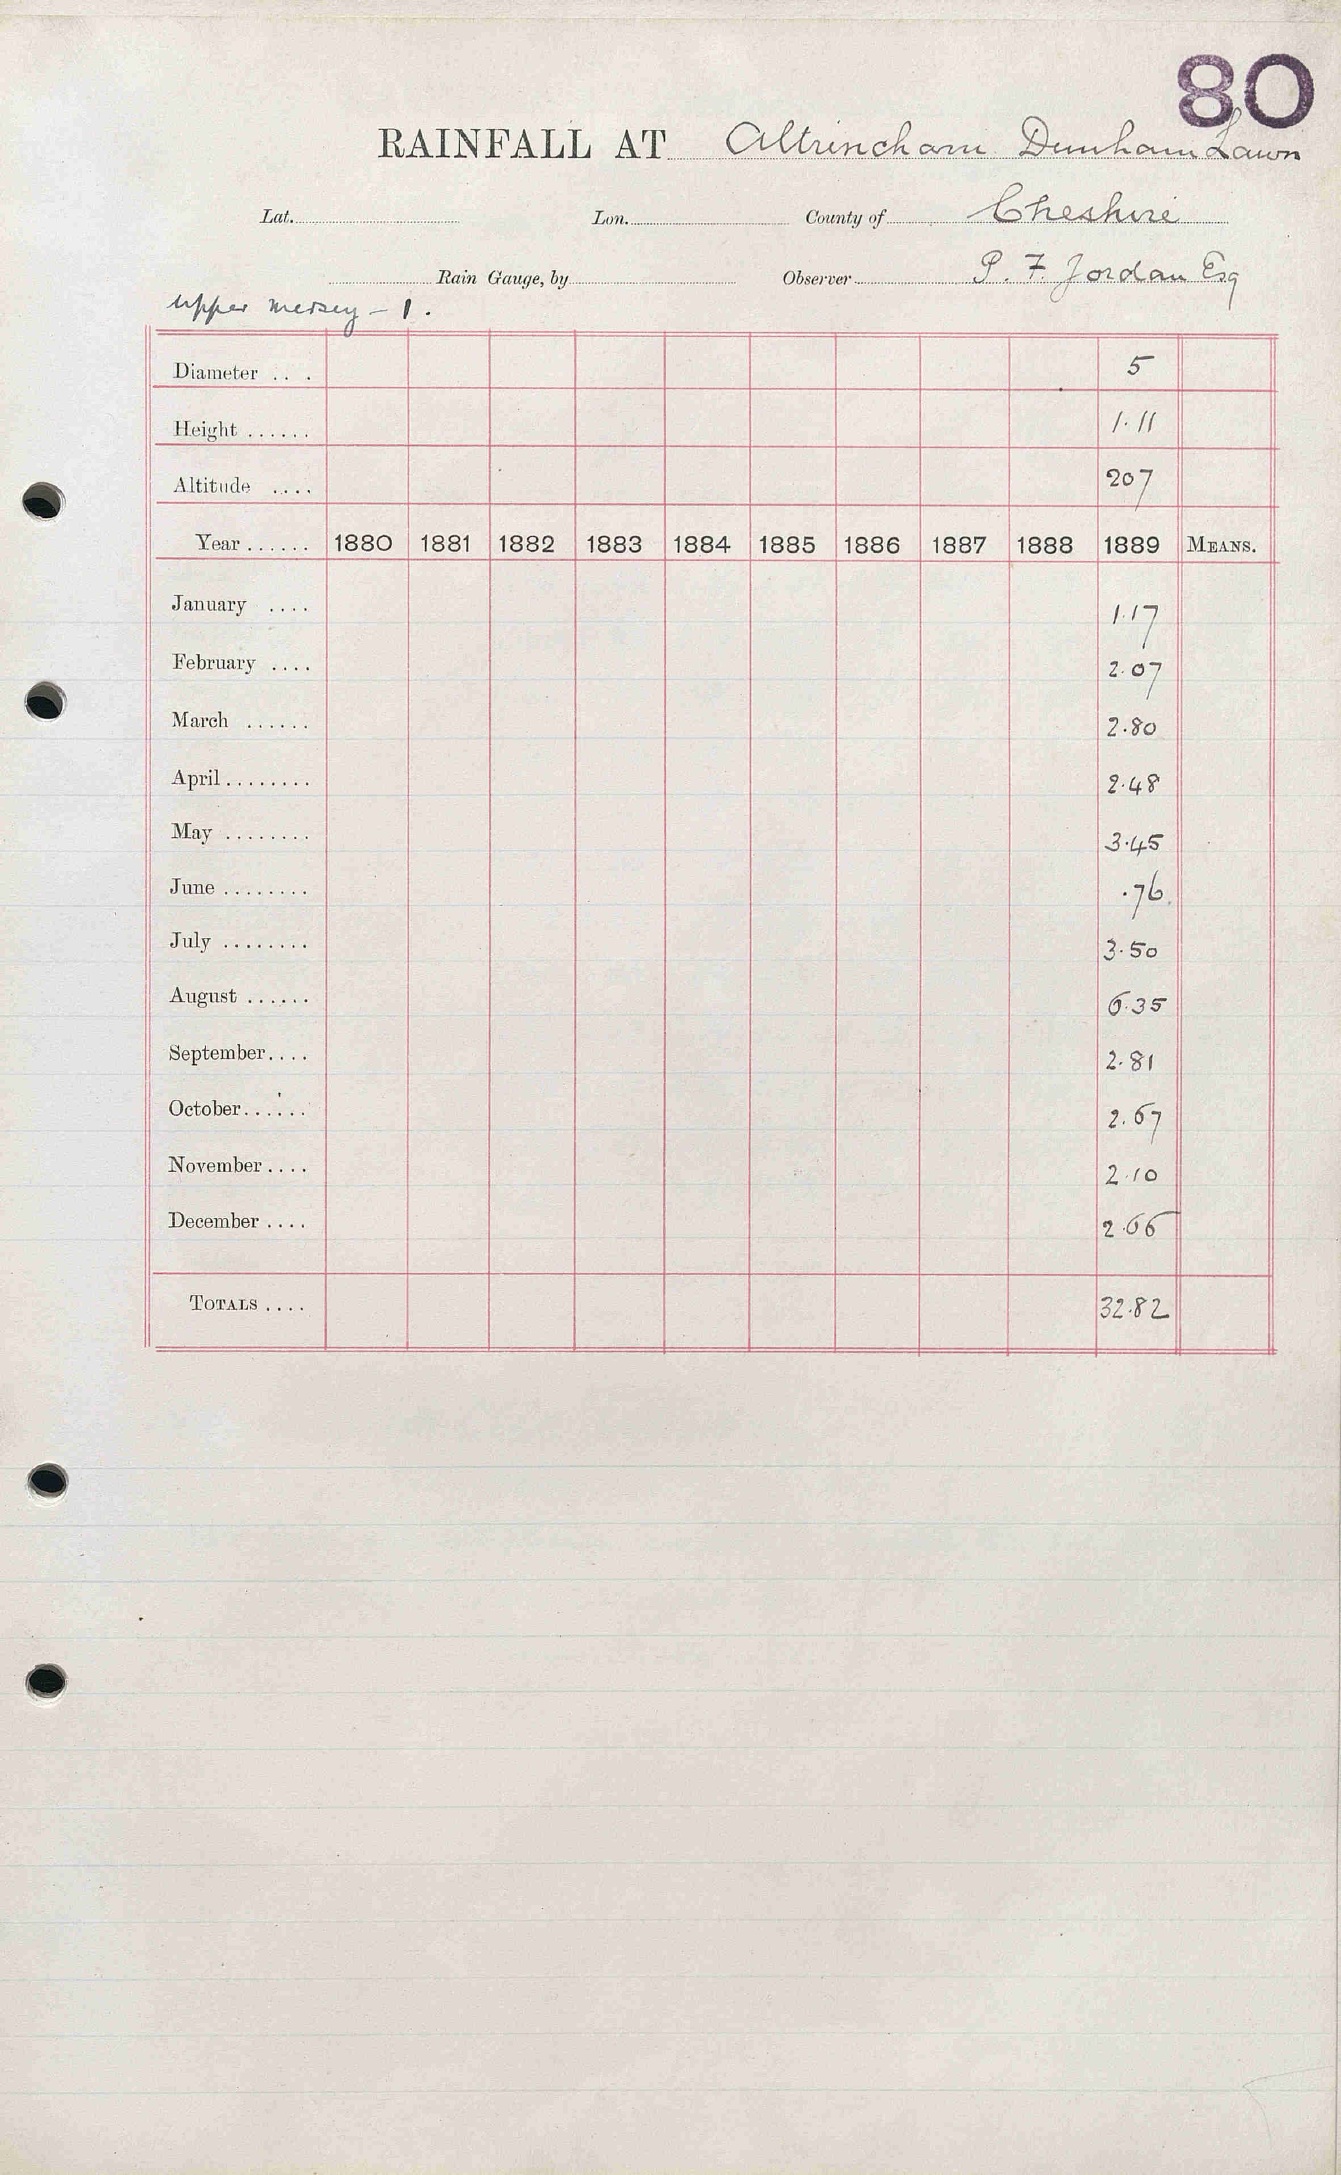 80
RAINFALL AT Altrincham Dunham Lawn
Lat. Lon. County of Cheshire
Rain Gauge, by Observer P. F. Jordan Esq
Upper Mersey - 1.
Diameter .. . 5
Height ...... 1.11
Altitude .... 207
Year ...... 1880 1881 1882 1883 1884 1885 1886 1887 1888 1889 MEANS.
January .... 1.17
February .... 2.07
March ...... 2.80
April ........ 2.48
May ........ 3.45
June ........ .76
July ........ 3.50
August ...... 6.35
September.... 2.81
October...... 2.67
November.... 2.10
December.... 2.66
TOTALS .... 32.82